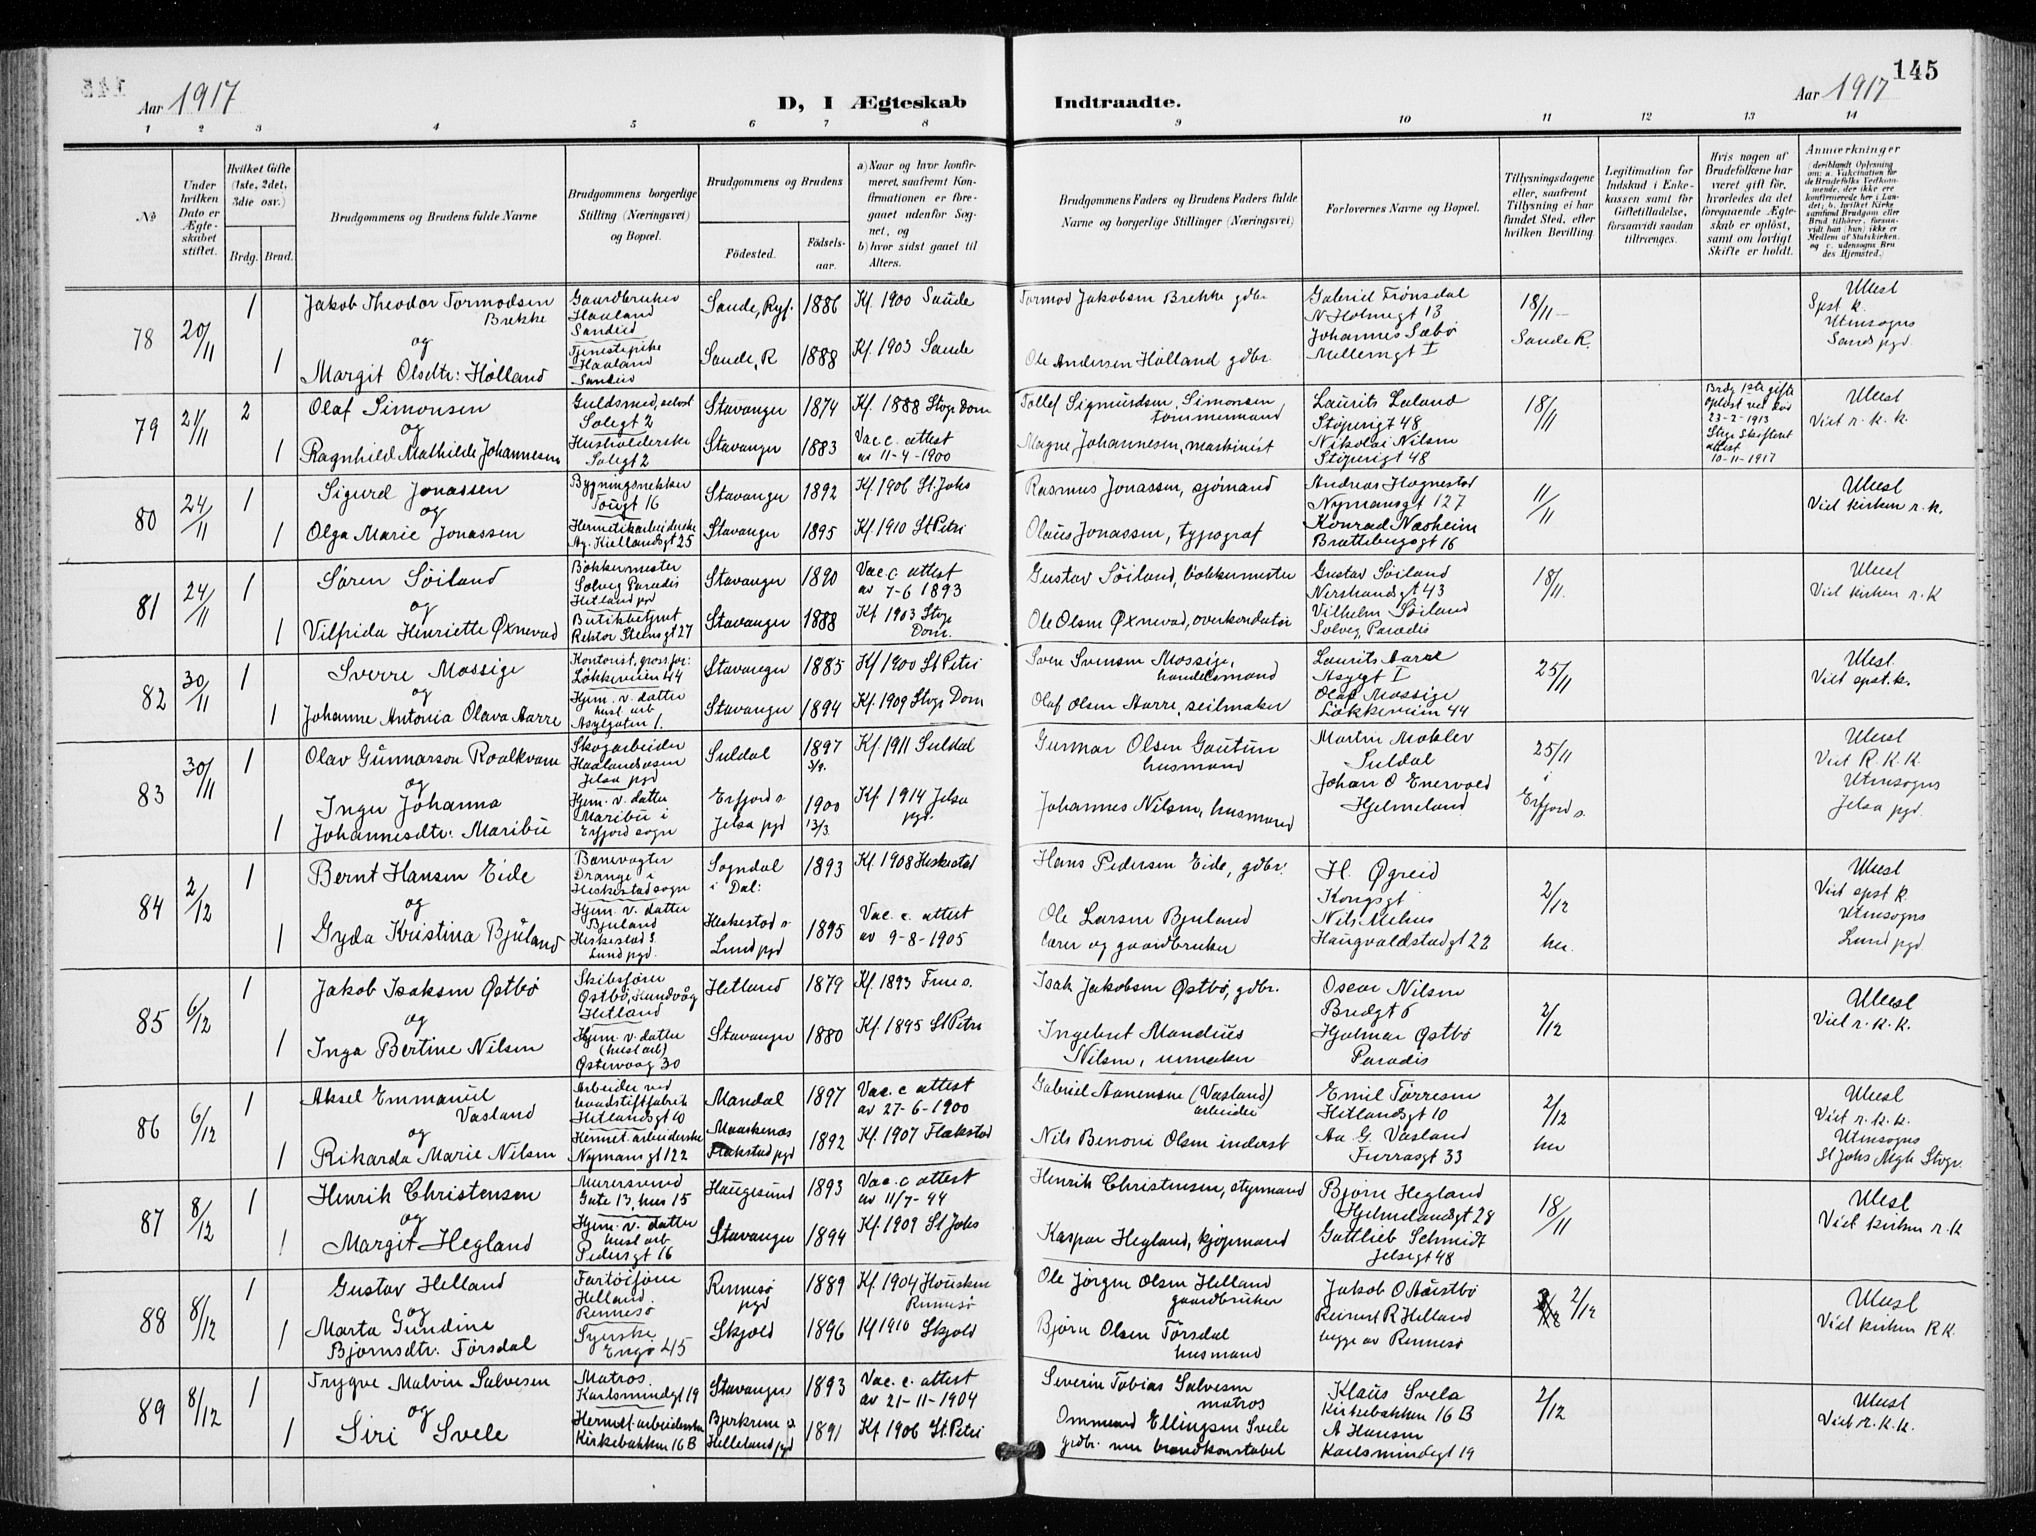 145
Aar 1917
D, I Ægteskab Indtraadte.
Aar 1917
1 2 3 4 5 6 7 8 9 10 11 12 13 14
№
Under hvilken Dato er Ægteskabet stiftet.
Hvilket Gifte (1ste, 2det, 3die osv.)
Brdg. Brud.
Brudgommens og Brudens fulde Navne
Brudgommens borgerlige Stilling (Næringsvei) og Bopæl.
Brudgommens og Brudens
Födested.
Födselsaar.
a) Naar og hvor konfirmeret, saafremt Konfirmationen er foregaaet udenfor Sognet, og
b) hvor sidst gaaet til Alters.
Brudgommens Faders og Brudens Faders fulde Navne og borgerlige Stillinger (Næringsvei)
Forlovernes Navne og Bopæl.
Tillysningsdagene eller, saafremt Tillysning ei har fundet Sted, efter hvilken Bevilling.
Legitimation for Indskud i Enkekassen samt for Giftetilladelse, forsaavidt saadan tiltrænges.
Hvis nogen af Brudefolkene har været gift för, hvorledes da det foregaaende Ægteskab er oplöst, samt om lovligt Skifte er holdt.
Anmærkninger
(deriblandt Oplysning om: a. Vakcination for de Brudefolks Vedkommende, der ikke ere konfirmerede her i Landet; b. hvilket Kirkesamfund Brudgom eller Brud tilhører, forsaavidt han (hun) ikke er Medlem af Statskirken, og c. udensogns Brudes Hjemsted.)
78
20/11
1
Jakob Theodor Tormodsen Brekke
Gaardbruker
Haaland
Sandeid
Sande, Ryf.
1886
Kf. 1900 Saude
Tormod Jakobsen Brekke gdbr
Gabriel Trönsdal
N Holmegt 13
18/11
Sande R.
Utensogns
og
1
Margit Olsdtr: Hölland
Tjenestepike
Haaland
Sandeid
Sande, R
1888
Kf. 1903 Sande
Ole Andersen Hölland gdbr.
Johannes Sæbö
Mellemgt I
79
21/11
2
Olaf Simonsen
Guldsmed, selvst
Solegt 2
Stavanger
1874
Kf. 1888 Stvgr Dom
Tollef Sigmundsen, Simonsen tömmermand
Laurits Laland
Støperigt 48
18/11
Brdg 1ste gifte
opløst ved død
23-2-1913
10-11-1917
Viet r. k. k.
og
1
Ragnhild Mathilde Johannesen
Husholderske
Solegt 2
Stavanger
1883
Vac c. attest
av 11-4-1900
Magne Johannesen, maskinist
Nikolai Nilsen
Støperigt 48
80
24/11
1
Sigurd Jonassen
Bygningssnekker
Tougt 16
Stavanger
1892
Kf. 1906 St. Johs
Rasmus Jonassen, sjömand
Andreas Hognestad
Nymansgt 127
11/11
Viet kirken r. k.
og
1
Olga Marie Jonassen
Hermetikarbeiderske
Ag. Kiellandsgt 25
Stavanger
1895
Kf. 1910 St Petri
Olaus Jonassen, typograf
Konrad Næsheim
Brattebergsgt 16
81
24/11
1
Sören Söiland
Bökkermester
Solveg Paradis
Hetland pgd
Stavanger
1890
Vac. c attest
av 7-6 1893
Gustav Söiland, bökkermester
Gustav Söiland
Nerstrandsgt 43
18/11.
Viet kirken r. k
og
1
Vilfrida Henriette Øxnevad
Butikbetjent
Rektor Steensgt 27
Stavanger
1888
Kf 1903 Stvgr Dom.
Ole Olsen Øxnevad, overkonduktör
Vilhelm Söiland
Solveg, Paradis
82
30/11
1
Sverre Mossige
Lökkeveien 44
Stavanger
1885
Kf. 1900 St Petri
Sven Svensen Mossige, handelsmand
Laurits Aarre
Asygt I
25/11
Viet spst. k.
og
1
Johanne Antonia Olava Aarre
Hjem. v. datter
hust arb
Asylgaten 1.
Stavanger
1894
Kf. 1909 Stvgr Dom
Olaf Olsen Aarre, seilmaker
Olaf Mossige
Lökkeveien 44
83
30/11
1
Olav Gunnarson Roalkvam
Skogarbeider
Haalandsosen
Jelsa pgd
Suldal
1897
3/9.
Kf. 1911 Suldal
Gunnar Olsen Gautun husmand
Martin Mokler
Suldal
25/11
i
Erfjord s.
Viet R. K. K.
Utensogns
Jelsa pgd.
og
1
Inger Johanna
Johannesdtr: Maribu
Hjem. v. datter
Maribu i
Erfjord sogn
Erfjord s
Jelsa pgd
1900
13/3
Kf. 1914 Jelsa pgd.
Johannes Nilsen, husmand
Johan O Enervold
Hjelmeland
84
2/12
1
Bernt Hansen Eide
Banevogter
Drange i
Heskestad sogn
Sogndal
i Dal:
1893
Kf. 1908 Heskestad
Hans Pedersen Eide, gdbr.
H. Øgreid
Kongsgt
2/12
her.
Viet spst k.
Utensogns
Lund pgd.
og
1
Gyda Kristina Bjuland
Hjem. v. datter
Bjuland
Heskestad S.
Lund pgd.
Heskestad s
Lund pgd
1895
Vac. c. attest
av 9-8-1905
Ole Larsen Bjuland
lærer og gaardbruker
Nils Mehus
Haugvaldstadgt 22
85
6/12
1
Jakob Isaksen Østbö
Skibsförer
Østbö, Hundvåg
Hetland
Hetland
1879
Kf. 1893 Frue s.
Isak Jakobsen Østbö, gdbr.
Oscar Nilsen
Bredgt 6
2/12
Viet r. k. k.
og
1
Inga Bertine Nilsen
Hjem. v. datter
(hust arb)
Østervaag 30
Stavanger
1880
Kf. 1895 St Petri
Ingebret Mandius
Nilsen, urmaker
Hjalmar Østbö
Paradis
86
6/12
1
Aksel Emmanuel Vasland
Arbeider ved
traadstiftfabrik
Hetlandsgt 10
Mandal
1897
Vac. c attest
av 27-6-1900
Gabriel Aanensen (Vasland) arbeider
Emil Törresen
Hetlandsgt 10
2/12
her
Viet r. k. k.
Utensogns
St Johs Mgh Stvgr.
og
1
Rikarda Marie Nilsen
Hermet. arbeiderske
Nymansgt 122
Maarkenæs
Flakstad pgd
1892
Kf. 1907 Flakstad
Nils Benoni Olsen inderst
Aa G. Vasland
Furrasgt 33
87
8/12
1
Henrik Christensen
Murersvend
Gate 13, hus 15
Haugesund
1893
Vac. c attest
av 11/7-94
Henrik Christensen, styrmand
Bjørn Hegland
Hjelmelandsgt 28
18/11
Viet kirken r. k
og
1
Margit Hegland
Hjem. v. datter
hust arb
Pedersgt 16
Stavanger
1894
Kf. 1909 St Johs
Kaspar Hegland, kjøpmand
Gottlieb Schmidt
Jelsegt 48
88
8/12
1
Gustav Helland
Fartöiförer
Helland.
Rennesö
Rennesö pgd
1889
Kf. 1904 Hausken Rennesö
Ole Jörgen Olsen Helland gaardbruker
Jakob O Austbö
2/12
Viet kirken R.K.
og
1
Marta Gundine
Bjørnsdtr. Törsdal
Syerske
Engø 45
Skjold
1896
Kf 1910 Skjold
Bjørn Olsen Törsdal husmand
Reinert R Helland
begge av Rennesö
89
8/12
1
Trygve Malvin Salvesen
Matros.
Karlsmindegt 19
Stavanger
1893
Vac. c. attest
av 21-11-1904
Severin Tobias Salvesen matros
Klaus Svela
Kirkebakken 16 B
2/12
Viet r. k. k.
og
1
Siri Svele
Hermet. arbeiderske
Kirkebakken 16 B
Bjerkrem s.
Helleland pgd
1891
Kf 1906 St. Petri
Ommund Ellingsen Svele
gdbr. nu brandkonstabel
A Hansen
Karlsmindegt 19